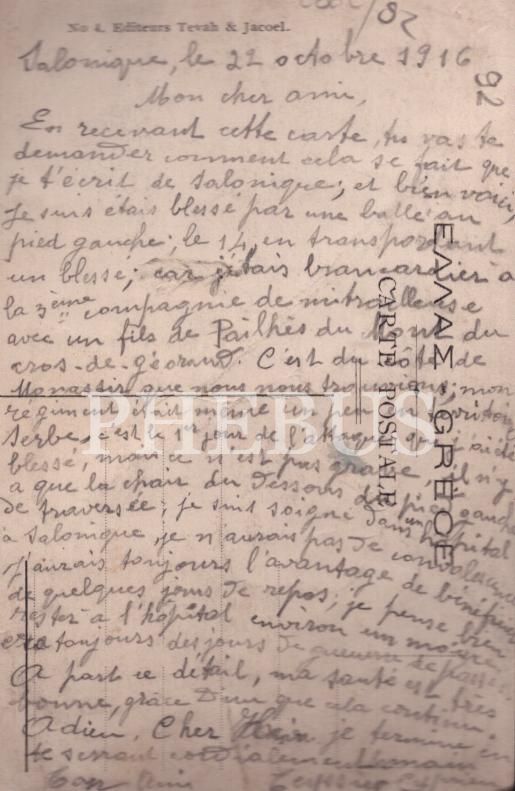 No 4. Editeurs Tevah & Jacoel.
82
92
Salonique, le 22 octobre 1916
Mon cher ami,
En recevant cette carte, tu vas te
demander comment cela se fait que
je t'écrit de Salonique; et bien voici,
Je suis étais blessé par une balle au
pied gauche; le 14, en transportant
un blessé; car j'étais brancardier à
la 3ème compagnie de mitrailleuse
avec un fils de Pailhès du Mont du
cros-de-géorand. C'est du côté de
Monastir que nous nous trouvions; mon
régiment était même un peu en territoire
Serbe, c'est le 1er jour de l'attaque que j'ai été
blessé, mais ce n'est pas grave, il n'y
a que la chair du dessous du pied gauche
de traversée; je suis soigné dans un hôpital
à Salonique, je n'aurais pas de convalescence
j'aurais toujours l'avantage de bénéficier
de quelques jours de repos; je pense bien
rester à l'hôpital environ un mois,
toujours des jours de guerre de passé
A part ce détail, ma santé est très
bonne, grâce Dieu que cela continu.
Adieu, Cher je termine en
te serrant cordialement la main
Ton ami
ΕΛΛΑΣ GRÈCE
CARTE POSTALE
PHEBUS